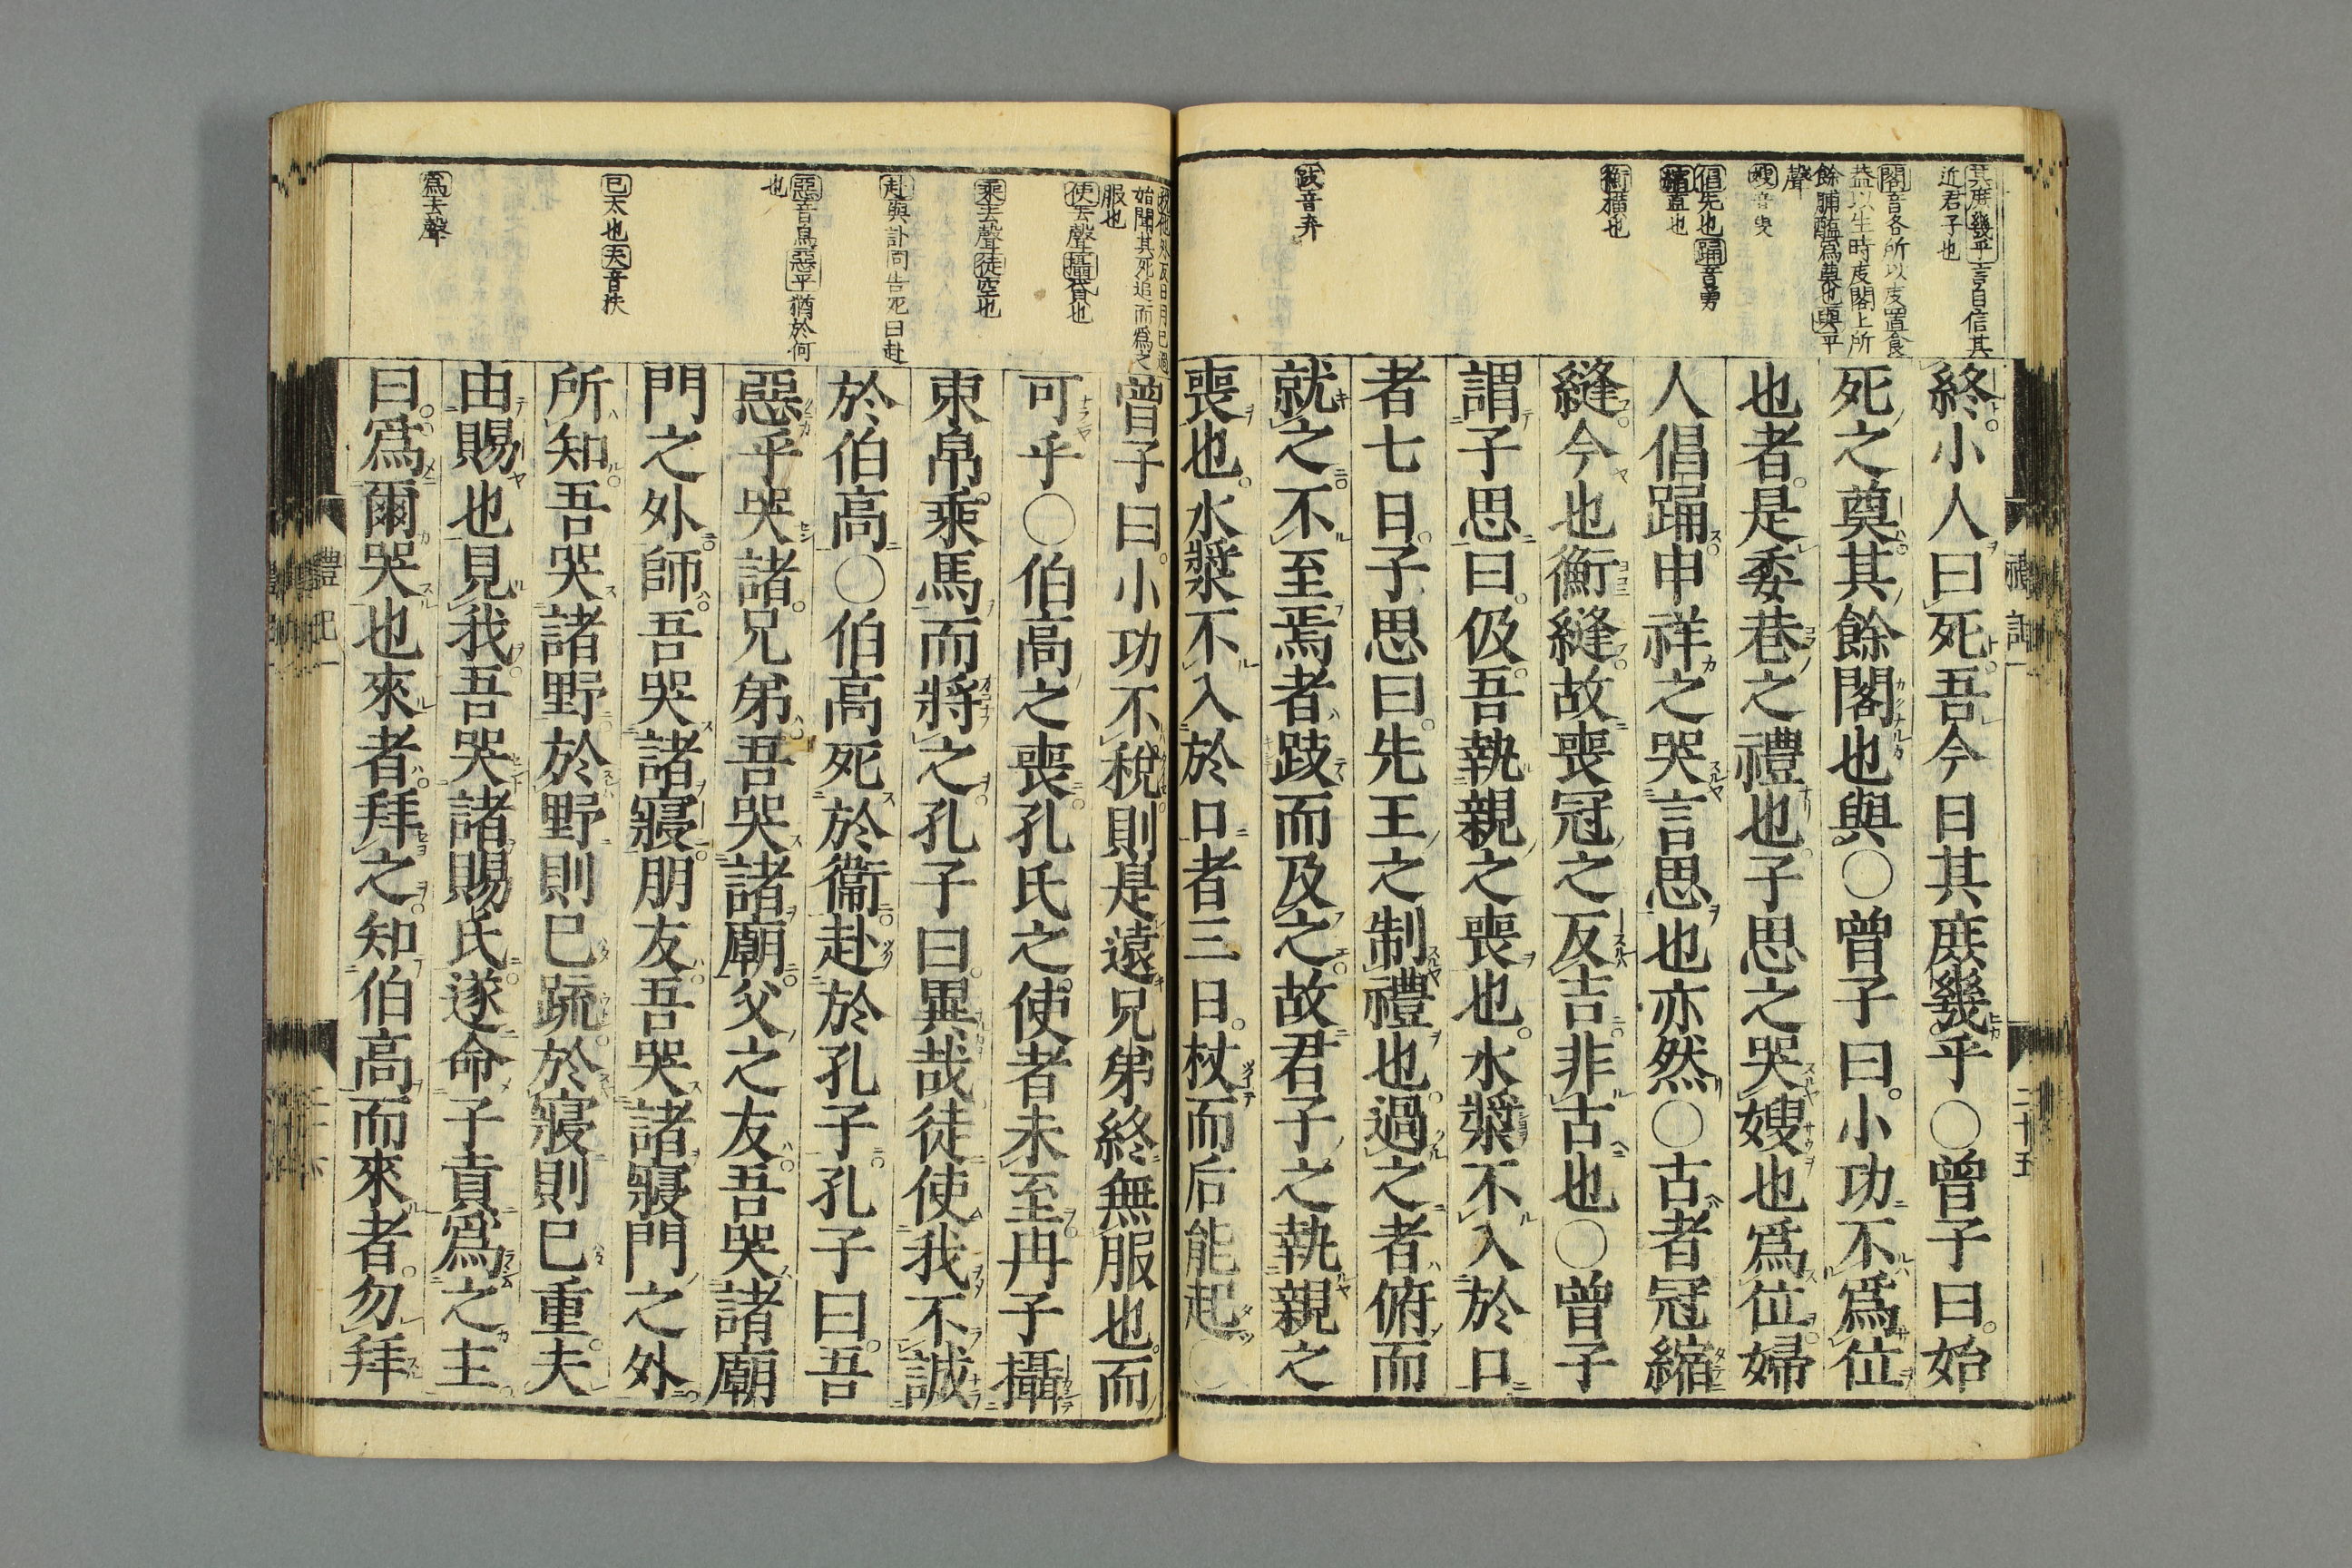 其庶幾乎言自信其
近君子也
閣音各所以庋置食
葢以生時庋閣上所
餘脯醢爲奠也與平
聲
嫂音叟
倡先也踊音勇
縮直也
衡橫也
跂音弃
終小人曰死吾今日其庶幾乎○曾子曰始
死之奠其餘閣也與○曾子曰小功不爲位
也者是委巷之禮也子思之哭嫂也爲位婦
人倡踊申祥之哭言思也亦然○古者冠縮
縫今也衡縫故喪冠之反吉非古也○曾子
謂子思曰伋吾執親之喪也水漿不入於口
者七日子思曰先王之制禮也過之者俯而
就之不至焉者跂而及之故君子之執親之
喪也水漿不入於口者三日杖而后能起○
禮記一
二十五
始聞其死追而爲之
服也
使去聲攝貸也
乘去聲徒空也
赴與訃同告死曰赴
惡音烏惡乎猶於何
也
已太也夫音扶
爲去聲
曾子曰小功不稅則是遠兄弟終無服也而
可乎○伯高之喪孔氏之使者未至冉子攝
束帛乘馬而將之孔子曰異哉徒使我不誠
於伯高○伯高死於衞赴於孔子孔子曰吾
惡乎哭諸兄弟吾哭諸廟父之友吾哭諸廟
門之外師吾哭諸寢朋友吾哭諸寢門之外
所知吾哭諸野於野則已疏於寢則已重夫
由賜也見我吾哭諸賜氏遂命子貢爲之主
曰爲爾哭也來者拜之知伯高而來者勿拜
禮記一